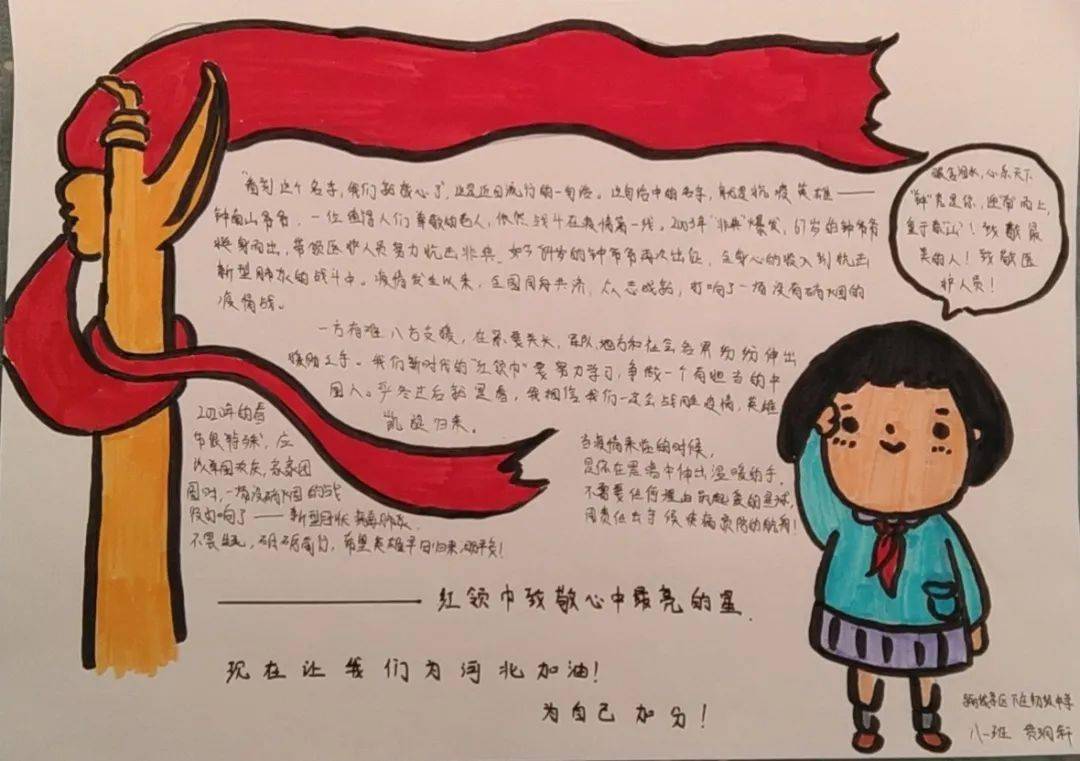 “看到这个名字，我们就放心了”，这是近日流行的一句话。这句话中的名字，就是抗疫英雄——
钟南山爷爷，一位值得人们尊敬的老人，依然战斗在疫情第一线。2003年“非典”爆发，67岁的钟爷爷
挺身而出，带领医护人员努力抗击非典，如今84岁的钟爷爷再次出征，全身心的投入到抗击
新型肺炎的战斗中。疫情发生以来，全国同舟共济，众志成城，打响了一场没有硝烟的
疫情战。
一方有难八方支援，在紧要关头，军队地方和社会各界纷纷伸出
援助之手。我们新时代的“红领巾”要努力学习，争做一个有担当的中
国人。严冬过后就是春，我相信我们一定会战胜疫情，英雄
凯旋归来。
2020年的春
节很“特殊”，应
以举国欢庆，各家团
圆时，一场没硝烟的战
役打响了——新型冠状病毒肺炎
不畏，砥砺前行，希望英雄早日归来，
当疫情来临的时候，
是你在黑暗中伸出温暖的手，
不需要任何理由
用责任去守候疾病
心系天下
“钟”竟是你，逆着而上，
致敬最
美的人！致敬医
护人员！
——红领巾致敬心中最亮的星.
现在让我们为河北加油！
为自己加分！
初级中学
八一班